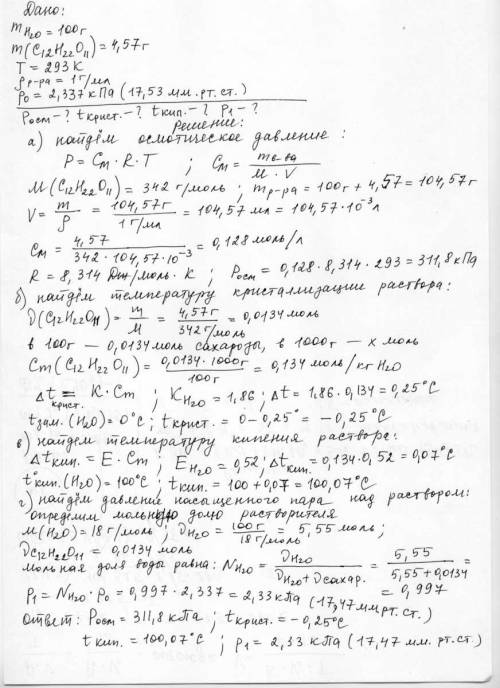 Дано:
m H2O = 100г
m(C12H22O11) = 4,57г
T = 293 K
ρр-ра = 1 г/мл
ρ0 = 2,337 кПа (17,53 мм.рт.ст.)
Pосм - ? tкрист. - ? tкип. - ? p1 - ?
Решение:
а) найдём осмотическое давление :
P = Cм · R · T ; Cм = mв-ва / M · V
M(C12H22O11) = 342 г/моль ; mр-ра = 100г + 4,57 = 104,57г
V = m/ρ = 104,57г / 1 г/мл = 104,57 мл = 104,57·10⁻³ л
Cм = 4,57 / 342 · 104,57·10⁻³ = 0,128 моль/л
R = 8,314 Дж/моль·К ; Pосм = 0,128·8,314·293 = 311,8 кПа
б) найдём температуру кристаллизации раствора:
ν(C12H22O11) = m/M = 4,57г / 342 г/моль = 0,0134 моль
в 100г – 0,0134 моль сахарозы, в 1000г – x моль
Cm(C12H22O11) = 0,0134 · 1000г / 100г = 0,134 моль/кг H2O
Δtкрист. = K · Cm ; KH2O = 1,86 ; Δt = 1,86·0,134 = 0,25°C
tзам.(H2O) = 0°C ; tкрист. = 0 – 0,25° = – 0,25°C
в) найдём температуру кипения раствора:
Δtкип. = E · Cm ; EH2O = 0,52 ; Δtкип. = 0,134·0,52 = 0,07°C
t°кип.(H2O) = 100°C ; tкип. = 100 + 0,07 = 100,07°C
г) найдём давление насыщенного пара над раствором:
определим мольную долю растворителя
M(H2O) = 18 г/моль ; νH2O = 100г / 18 г/моль = 5,55 моль ;
νC12H22O11 = 0,0134 моль
мольная доля воды равна: NH2O = νH2O / νH2O + νсахар. = 5,55 / 5,55 + 0,0134 = 0,997
P1 = NH2O · ρ0 = 0,997 · 2,337 = 2,33 кПа (17,47 мм рт.ст.)
Ответ: Pосм = 311,8 кПа ; tкрист. = – 0,25°C
tкип. = 100,07°C ; p1 = 2,33 кПа (17,47 мм. рт.ст.)